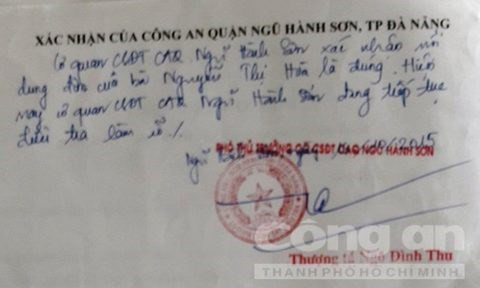 XÁC NHẬN CỦA CÔNG AN QUẬN NGŨ HÀNH SƠN, TP ĐÀ NẴNG
Cơ quan CSĐT CAQ Ngũ Hành Sơn xác nhận nội
dung đơn của bà Nguyễn Thị Hòa là đúng. Hiện
nay cơ quan CSĐT CAQ Ngũ Hành Sơn đang tiếp tục
điều tra làm rõ ./.
Ngũ Hành Sơn, ngày /2015
PHÓ THỦ TRƯỞNG CQ CSĐT CAQ NGŨ HÀNH SƠN
Thượng tá Ngô Đình Thu
Công an
THÀNH PHỐ HỒ CHÍ MINH